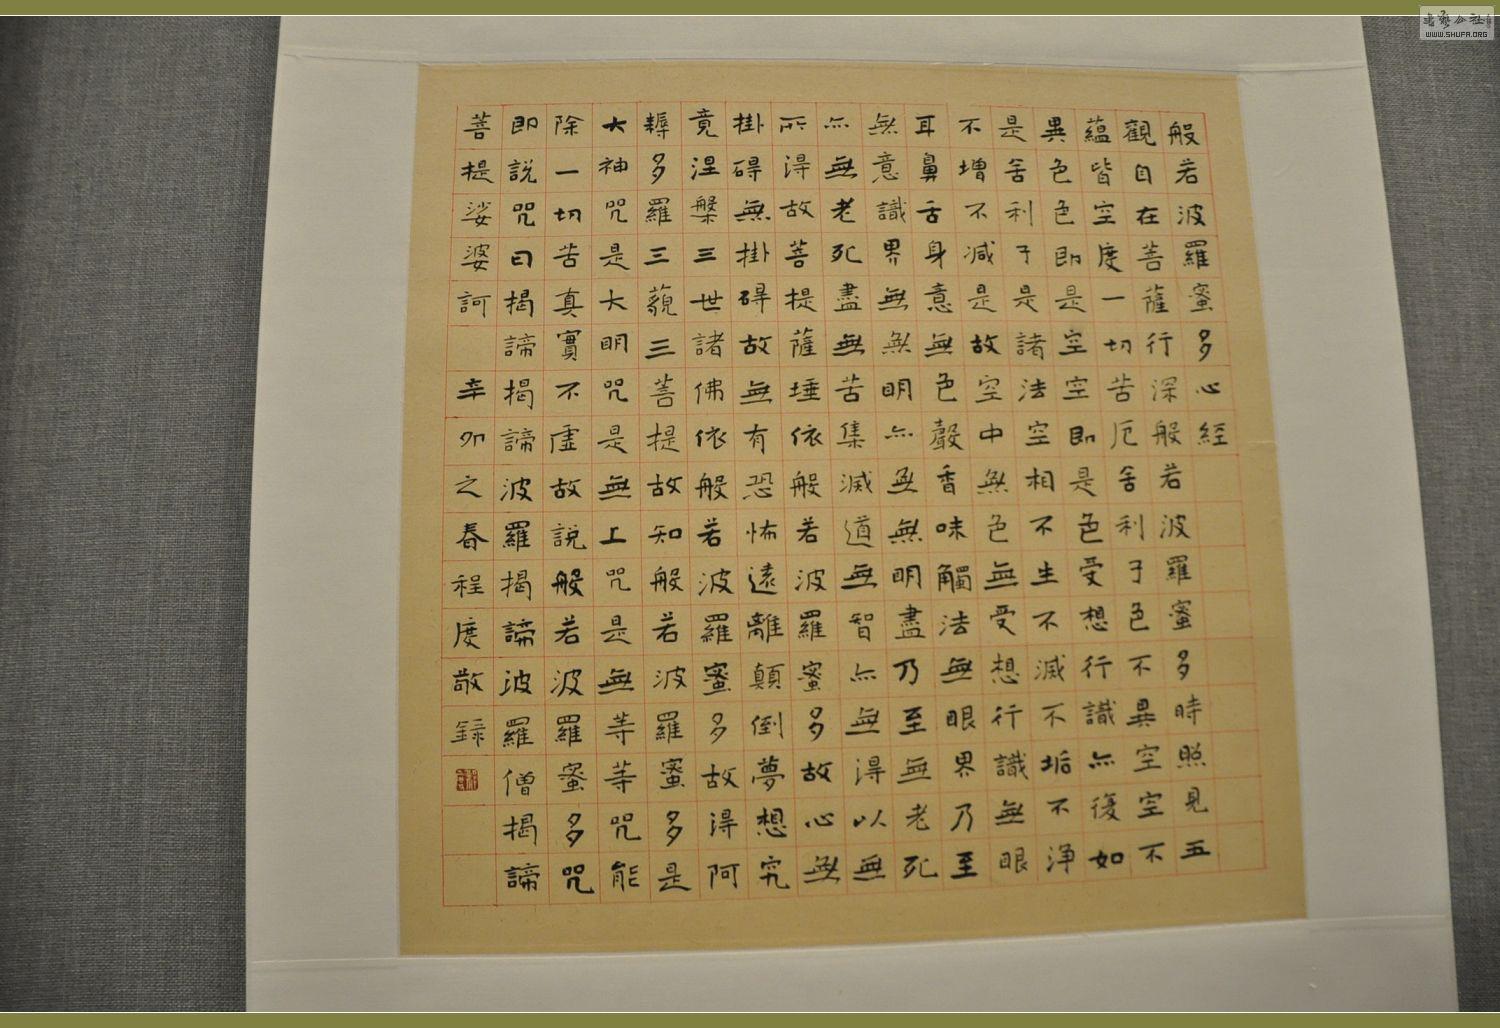 般若波羅蜜多心經
觀自在菩薩行深般若波羅蜜多時照見五
蘊皆空度一切苦厄舍利子色不異空空不
異色色即是空空即是色受想行識亦復如
是舍利子是諸法空相不生不滅不垢不淨
不增不減是故空中無色無受想行識無眼
耳鼻舌身意無色聲香味觸法無眼界乃至
無意識界無無明亦無無明盡乃至無老死
亦無老死盡無苦集滅道無智亦無得以無
所得故菩提薩埵依般若波羅蜜多故心無
掛碍無掛碍故無有恐怖遠離顛倒夢想究
竟涅槃三世諸佛依般若波羅蜜多故得阿
耨多羅三藐三菩提故知般若波羅蜜多是
大神咒是大明咒是無上咒是無等等咒能
除一切苦真實不虛故說般若波羅蜜多咒
即說咒曰揭諦揭諦波羅揭諦波羅僧揭諦
菩提娑婆訶 辛卯之春程度敬錄
WWW.SHUFA.ORG